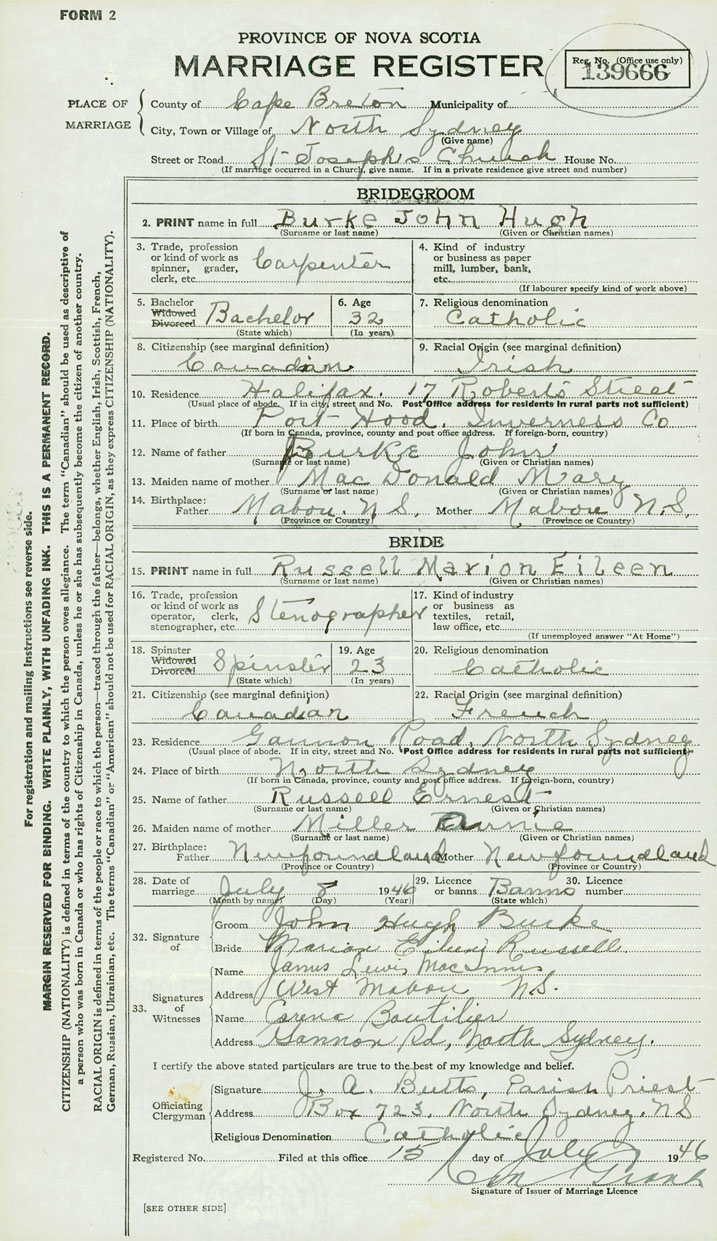 FORM 2
PROVINCE OF NOVA SCOTIA
MARRIAGE REGISTER
Reg. No. (Office use only)
139666
PLACE OF MARRIAGE
County of Cape Breton Municipality of
City, Town or Village of North Sydney
(Give name)
Street or Road St Joseph's Church House No.
(If marriage occurred in a Church, give name. If in a private residence give street and number)
BRIDEGROOM
2. PRINT name in full Burke John Hugh
(Surname or last name) (Given or Christian names)
3. Trade, profession or kind of work as spinner, grader, clerk, etc. Carpenter
4. Kind of industry or business as paper mill, lumber, bank, etc.
(If labourer specify kind of work above)
5. Bachelor Widowed Divorced Bachelor
(State which)
6. Age 32
(In years)
7. Religious denomination
Catholic
8. Citizenship (see marginal definition)
Canadian
9. Racial Origin (see marginal definition)
Irish
10. Residence Halifax. 17 Roberts Street
(Usual place of abode. If in city, street and No. Post Office address for residents in rural parts not sufficient)
11. Place of birth Port Hood, Inverness Co
(If born in Canada, province, county and post office address. If foreign-born, country)
12. Name of father Burke John
(Surname or last name) (Given or Christian names)
13. Maiden name of mother Mac Donald Mary
(Surname or last name) (Given or Christian names)
14. Birthplace: Father Mabou. N.S. Mother Mabou N.S.
(Province or Country) (Province or Country)
BRIDE
15. PRINT name in full Russell Marion Eileen
(Surname or last name) (Given or Christian names)
16. Trade, profession or kind of work as operator, clerk, stenographer, etc. Stenographer
17. Kind of industry or business as textiles, retail, law office, etc.
(If unemployed answer "At Home")
18. Spinster Widowed Divorced Spinster
(State which)
19. Age 23
(In years)
20. Religious denomination
Catholic
21. Citizenship (see marginal definition)
Canadian
22. Racial Origin (see marginal definition)
French
23. Residence Gannon Road, North Sydney
(Usual place of abode. If in city, street and No. Post Office address for residents in rural parts not sufficient)
24. Place of birth North Sydney
(If born in Canada, province, county and post office address. If foreign-born, country)
25. Name of father Russell Ernest
(Surname or last name) (Given or Christian names)
26. Maiden name of mother Miller Annie
(Surname or last name) (Given or Christian names)
27. Birthplace: Father Newfoundland Mother Newfoundland
(Province or Country) (Province or Country)
28. Date of marriage July 8 1946
(Month by name) (Day) (Year)
29. Licence or banns Banns
(State which)
30. Licence number
32. Signature of
Groom John Hugh Burke
Bride Marion Eileen Russell
33. Signatures of Witnesses
Name James Lewis MacInnis
Address West Mabou N.S.
Name Boutilier
Address Gannon Rd, North Sydney.
I certify the above stated particulars are true to the best of my knowledge and belief.
Officiating Clergyman
Signature J. A. Butts, Parish Priest
Address Box 723, North Sydney, N.S
Religious Denomination Catholic
Registered No. Filed at this office 15 day of July 1946
Signature of Issuer of Marriage Licence
[SEE OTHER SIDE]
For registration and mailing instructions see reverse side.
MARGIN RESERVED FOR BINDING. WRITE PLAINLY, WITH UNFADING INK. THIS IS A PERMANENT RECORD.
CITIZENSHIP (NATIONALITY) is defined in terms of the country to which the person owes allegiance. The term "Canadian" should be used as descriptive of
a person who was born in Canada or who has rights of Citizenship in Canada, unless he or she has subsequently become the citizen of another country.
RACIAL ORIGIN is defined in terms of the people or race to which the person—traced through the father—belongs, whether English, Irish, Scottish, French,
German, Russian, Ukrainian, etc. The terms "Canadian" or "American" should not be used for RACIAL ORIGIN, as they express CITIZENSHIP (NATIONALITY).